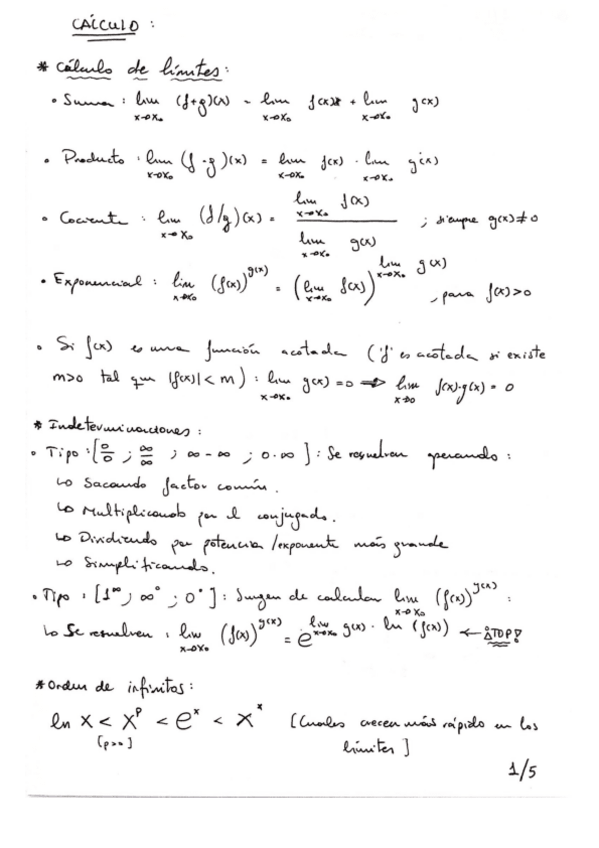 CÁLCULO :
* Cálculo de límites:
• Suma : lim x→x₀ (f+g)(x) = lim x→x₀ f(x) + lim x→x₀ g(x)
• Producto : lim x→x₀ (f·g)(x) = lim x→x₀ f(x) · lim x→x₀ g(x)
• Cociente : lim x→x₀ (f/g)(x) = lim x→x₀ f(x) / lim x→x₀ g(x) ; siempre g(x)≠0
• Exponencial : lim x→x₀ (f(x))^g(x) = (lim x→x₀ f(x))^lim x→x₀ g(x) , para f(x)>0
• Si f(x) es una función acotada ('f' es acotada si existe
m>0 tal que |f(x)|< m) : lim x→x₀ g(x) = 0 ⇒ lim x→0 f(x)·g(x) = 0
* Indeterminaciones :
• Tipo : [0/0 ; ∞/∞ ; ∞-∞ ; 0·∞ ] : Se resuelven operando :
↳ Sacando factor común.
↳ Multiplicando por el conjugado.
↳ Dividiendo por potencia/exponente más grande
↳ Simplificando.
• Tipo : [1^∞ ; ∞° ; 0° ] : Surgen de calcular lim x→x₀ (f(x))^g(x) :
↳ Se resuelven : lim x→x₀ (f(x))^g(x) = e^lim x→x₀ g(x) · ln (f(x)) ← ¡TOP!
* Orden de infinitos :
ln x < x^p < e^x < x^x [Cuales crecen más rápido en los
[p>0]
límites ]
1/5